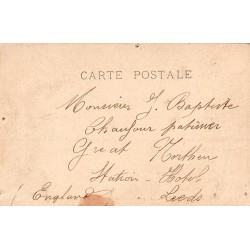 CARTE POSTALE
Monsieur J. Baptiste
Chaufour patissier
Great Northen
Station - Hotel
England Leeds